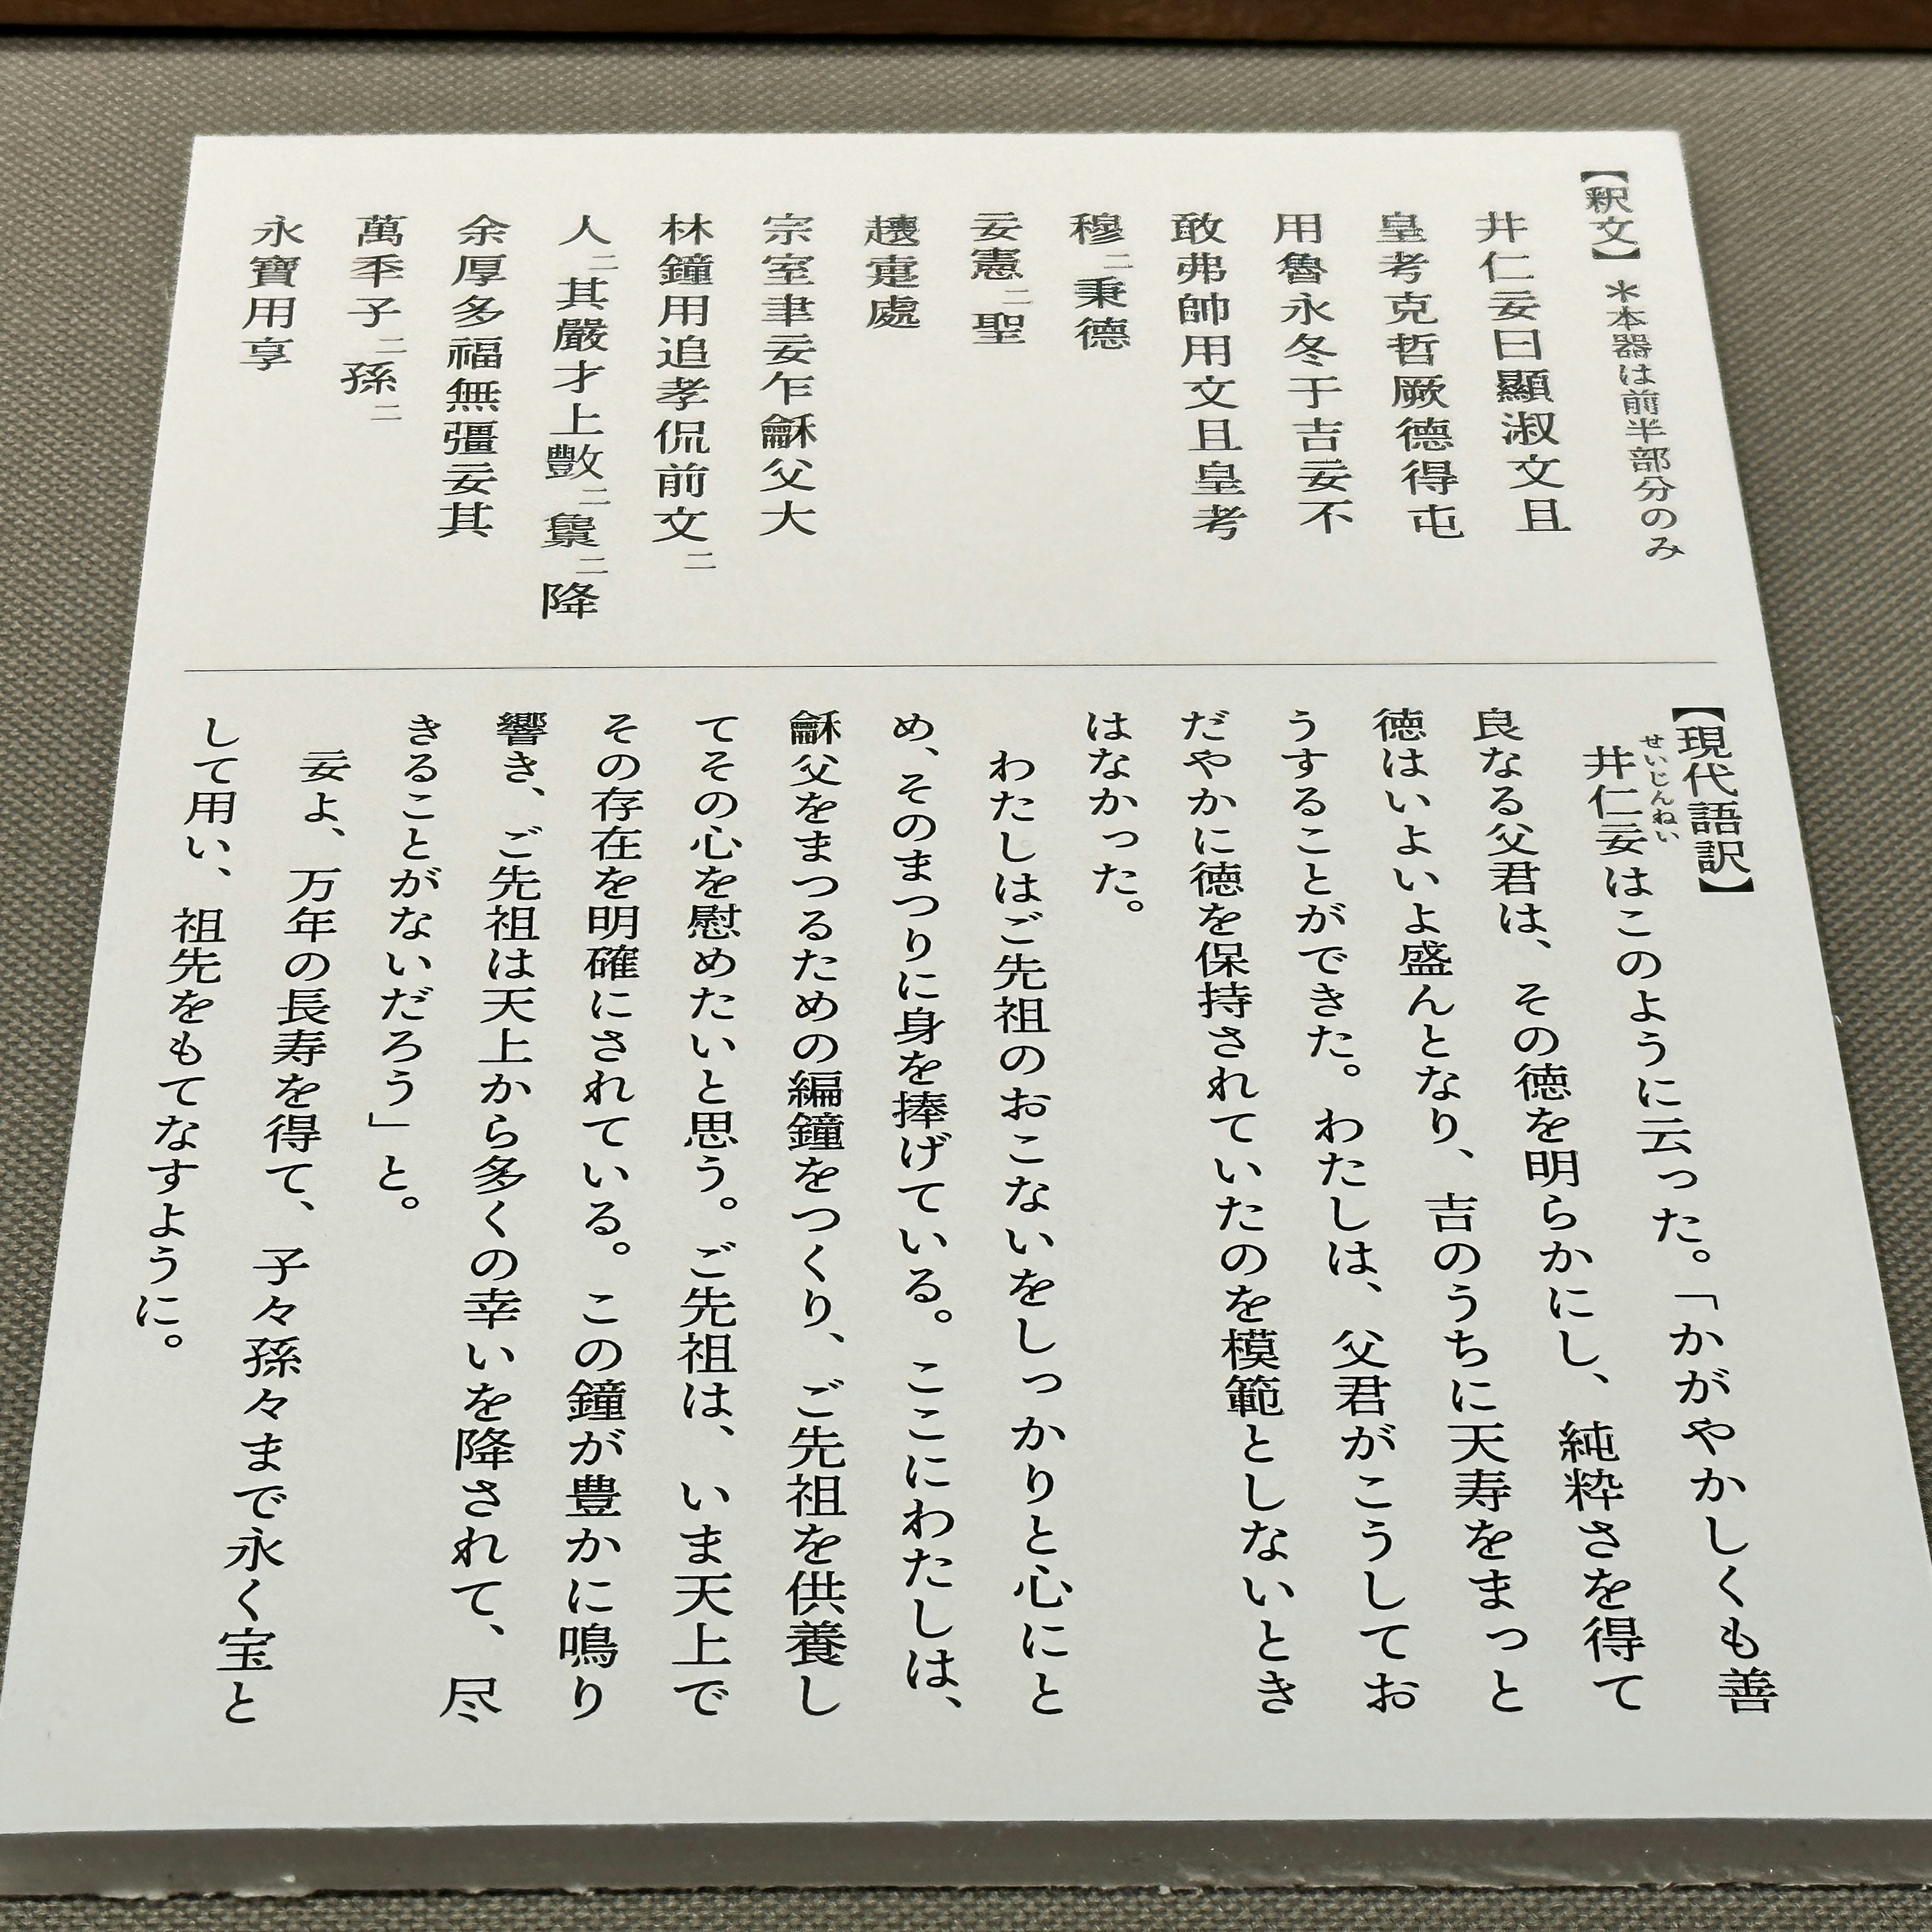 【釈文】＊本器は前半部分のみ
井仁妄曰顯淑文且
皇考克哲厥德得屯
用魯永冬于吉妄不
敢弗帥用文且皇考
穆〻秉德
妄憲〻聖
趩疐處
宗室聿妄乍龢父大
林鐘用追孝侃前文〻
人〻其嚴才上數〻㲋〻降
余厚多福無彊妄其
萬秊子〻孫〻
永寶用享
【現代語訳】
井仁妄はこのように云った。「かがやかしくも善
せいじんねい
良なる父君は、その徳を明らかにし、純粋さを得て
徳はいよいよ盛んとなり、吉のうちに天寿をまっと
うすることができた。わたしは、父君がこうしてお
だやかに徳を保持されていたのを模範としないとき
はなかった。
わたしはご先祖のおこないをしっかりと心にと
め、そのまつりに身を捧げている。ここにわたしは、
龢父をまつるための編鐘をつくり、ご先祖を供養し
てその心を慰めたいと思う。ご先祖は、いま天上で
その存在を明確にされている。この鐘が豊かに鳴り
響き、ご先祖は天上から多くの幸いを降されて、尽
きることがないだろう」と。
妄よ、万年の長寿を得て、子々孫々まで永く宝と
して用い、祖先をもてなすように。